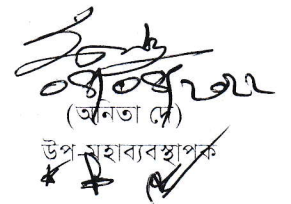 ০৭/০৭/২০২২
(অনিতা দে)
উপ-মহাব্যবস্থাপক